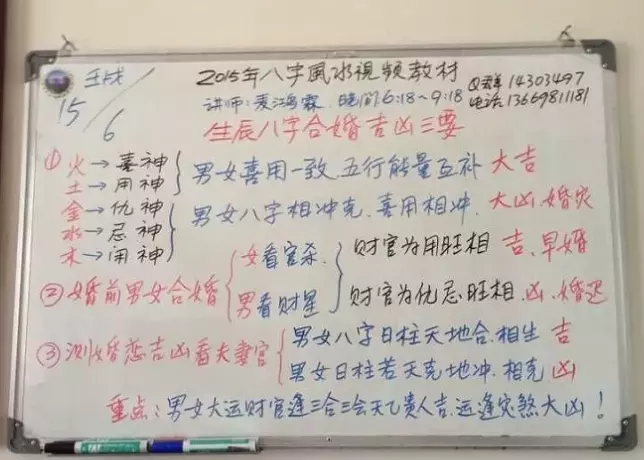 壬戌
15/6
2015年八字風水視频教材
Q群14303497
讲师:麦鸿霖.晚间6:18~9:18
电话:13669811181
生辰八字合婚吉凶三要
① 火→喜神
土→用神
男女喜用一致.五行能量互补 大吉
金→仇神
水→忌神
木→闲神
男女八字相冲克.喜用相冲. 大凶.婚灾
② 婚前男女合婚
女看官杀.
男看财星
财官为用旺相 吉.早婚
财官为仇忌旺相 凶.婚迟
③ 测婚恋吉凶看夫妻宫
男女八字日柱天地合.相生 吉
男女日柱若天克地冲.相克 凶
重点:男女大运财官逢三合三会天乙贵人吉.运逢灾煞大凶!